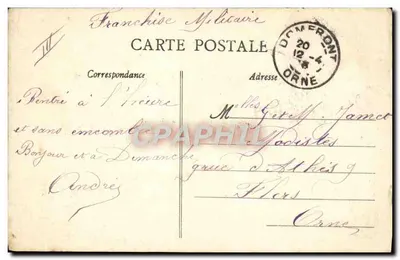 III
Franchise Militaire
CARTE POSTALE
DOMFRONT
20
12 -4
ORNE
Correspondance
Adresse
Rentré à l'heure
et sans encombre
Bonjour et à Dimanche
André
Melles G. et M. Jamet
Modistes
rue d'Athis 9
Flers
Orne
CARTHAGO